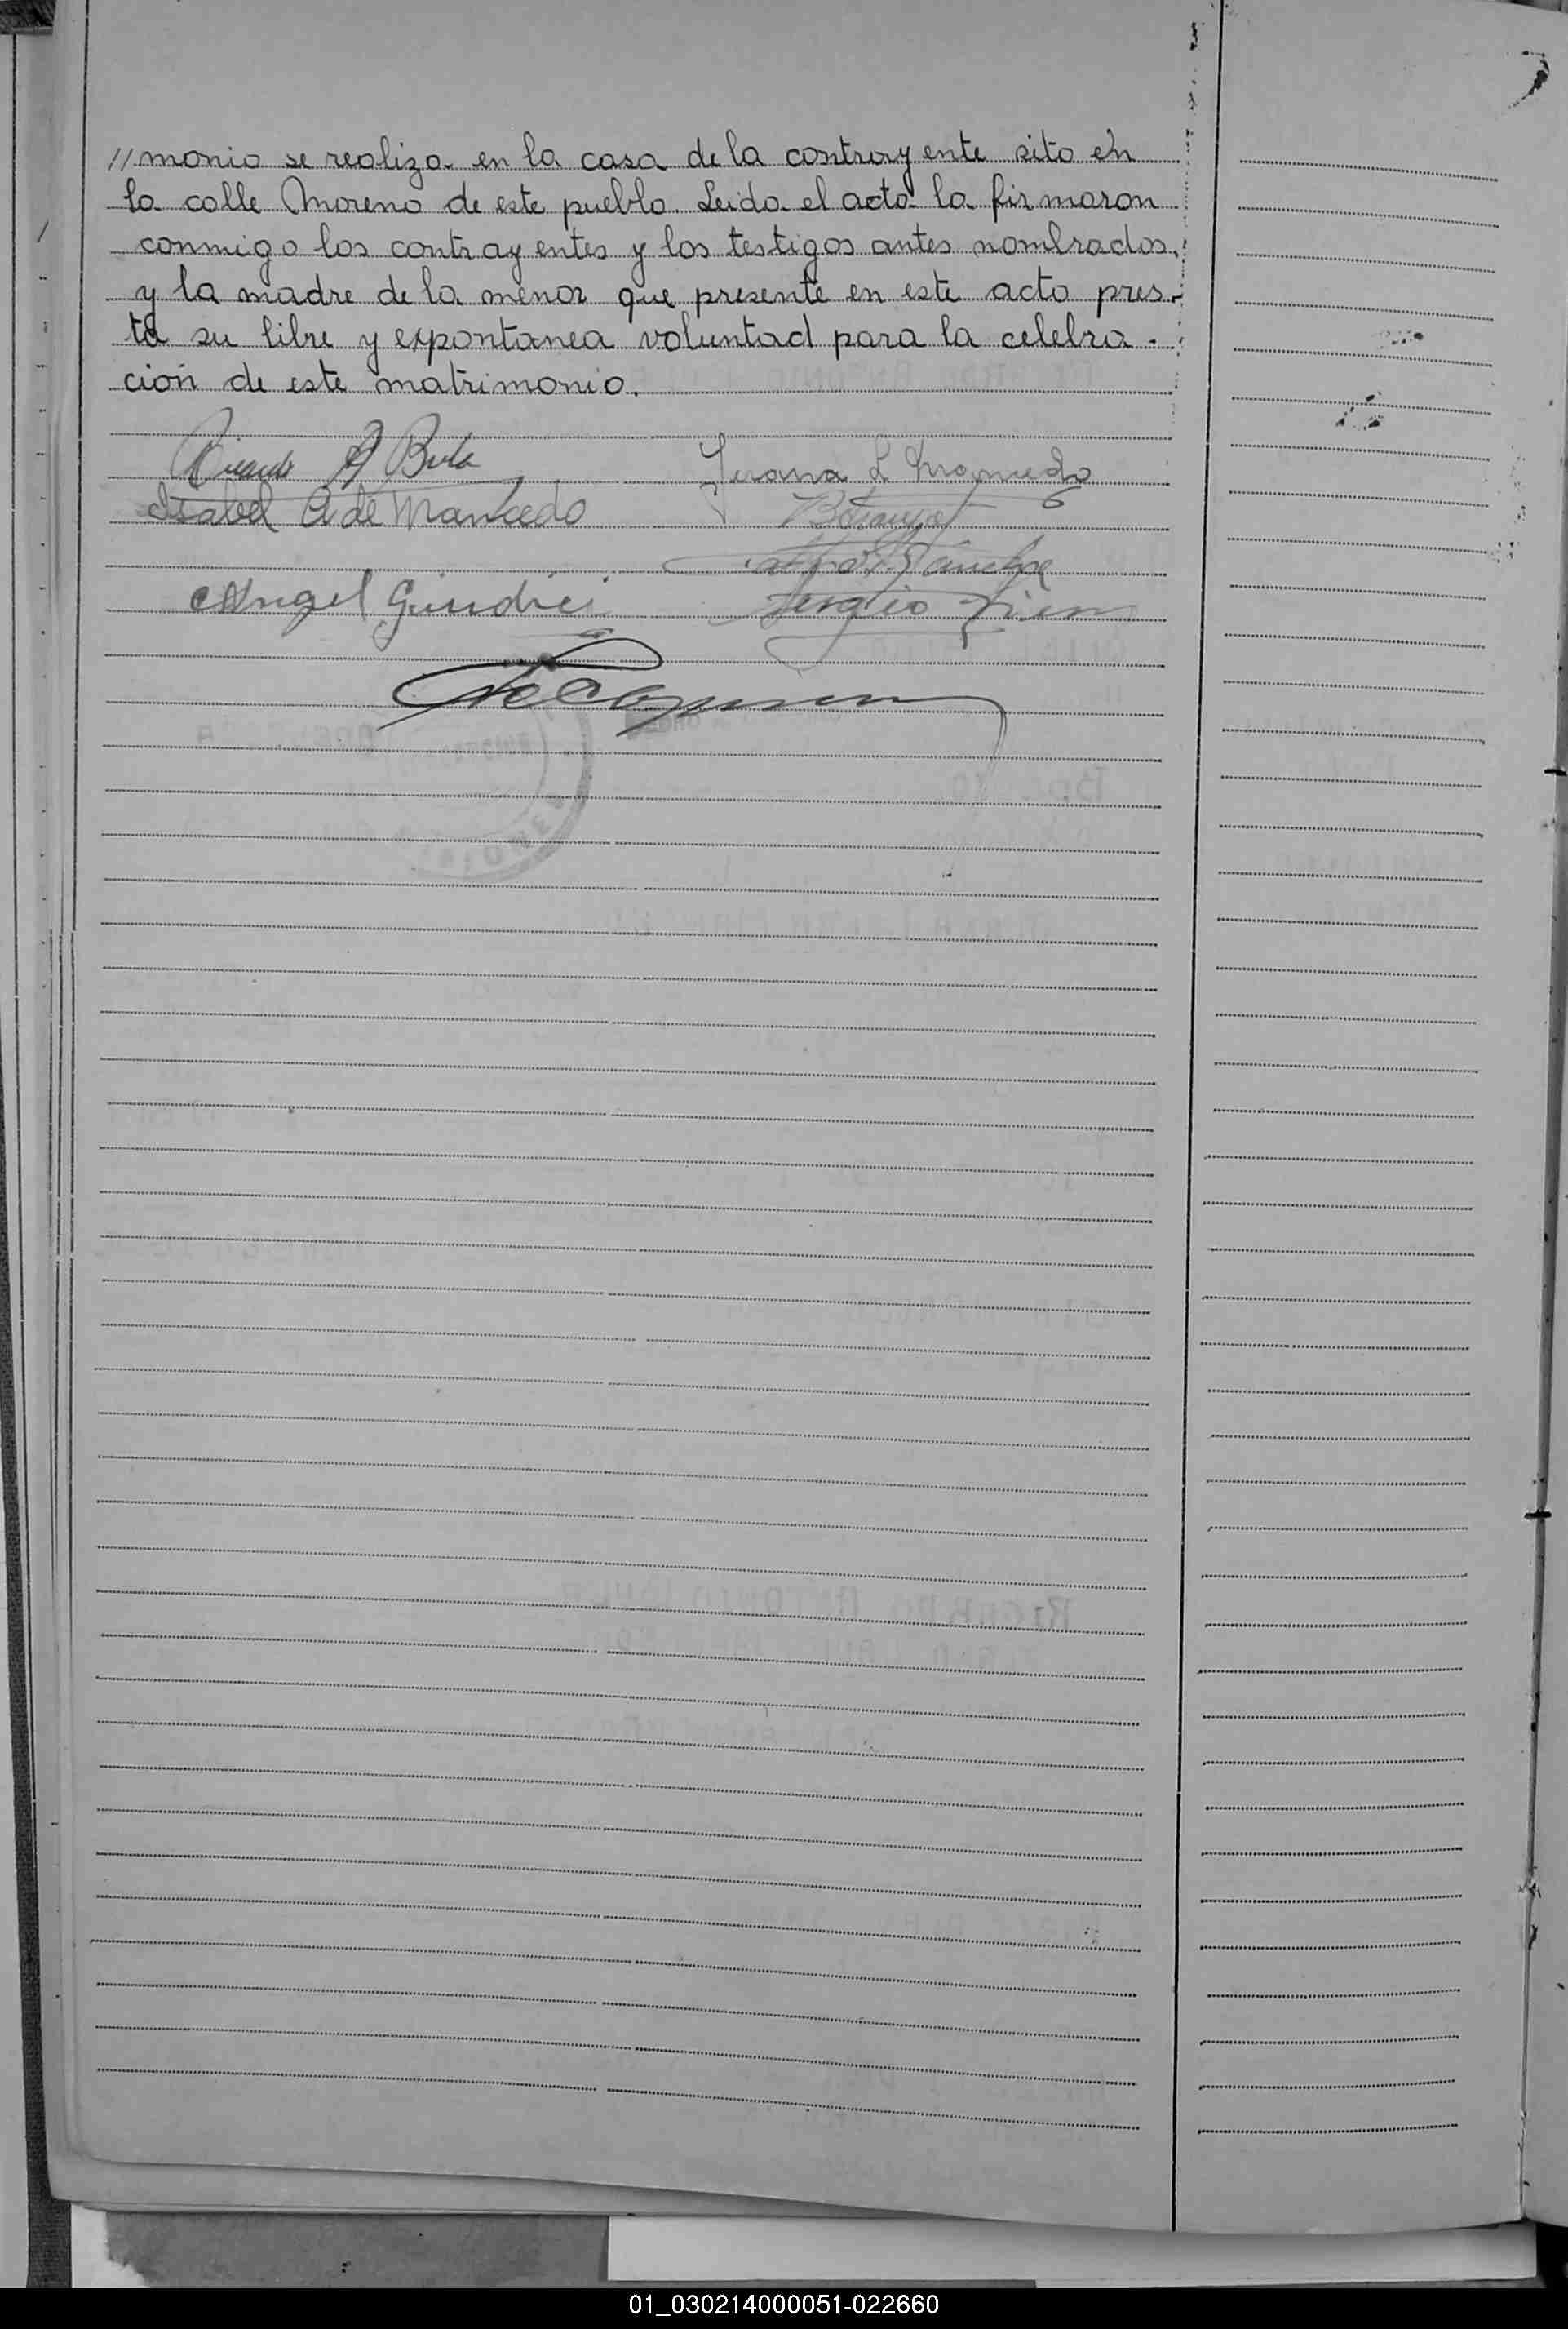 //monio se realiza en la casa de la contrayente sito en
la calle Moreno de este pueblo. Leida el acta la firmaron
conmigo los contrayentes y los testigos antes nombrados,
y la madre de la menor que presente en este acto pres-
ta su libre y expontanea voluntad para la celebra-
ción de este matrimonio.
Ricardo A
Juana L
Isabel A de Mansedo
Angel
Sergio
01_030214000051-022660